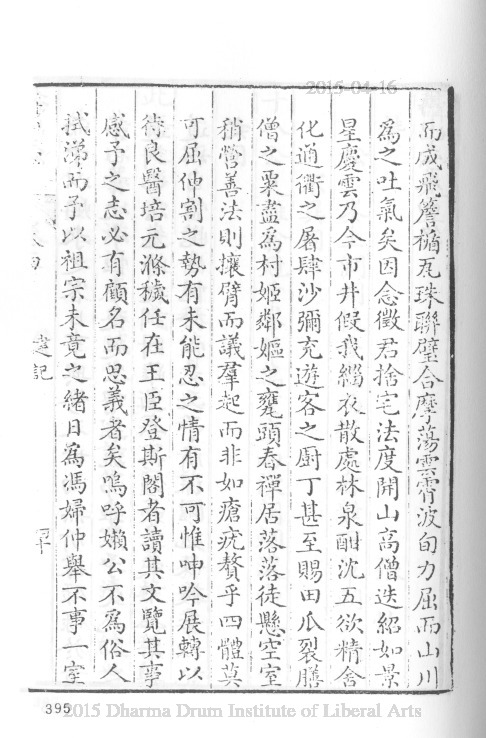 2015-04-16
而成飛簷楯瓦珠聯璧合摩蕩雲霄波旬力屈而山川
為之吐氣矣因念徵君捨宅法度開山高僧迭紹如景
星慶雲乃今市井假我緇衣散處林泉酣沈五欲精舍
化通衢之屠肆沙彌充遊客之厨丁甚至賜田瓜裂膳
僧之粟盡為村姬鄰嫗之甕頭春禪居落落徒懸空室
稍營善法則攘臂而議羣起而非如瘡疣贅乎四體莫
可屈伸割之勢有未能忍之情有不可惟呻吟展轉以
待良醫培元滌穢任在王臣登斯閣者讀其文覽其事
感予之志必有顧名而思義者矣嗚呼嬾公不為俗人
拭涕而予以祖宗未竟之緒日為馮婦仲舉不事一室
建記
395
2015 Dharma Drum Institute of Liberal Arts